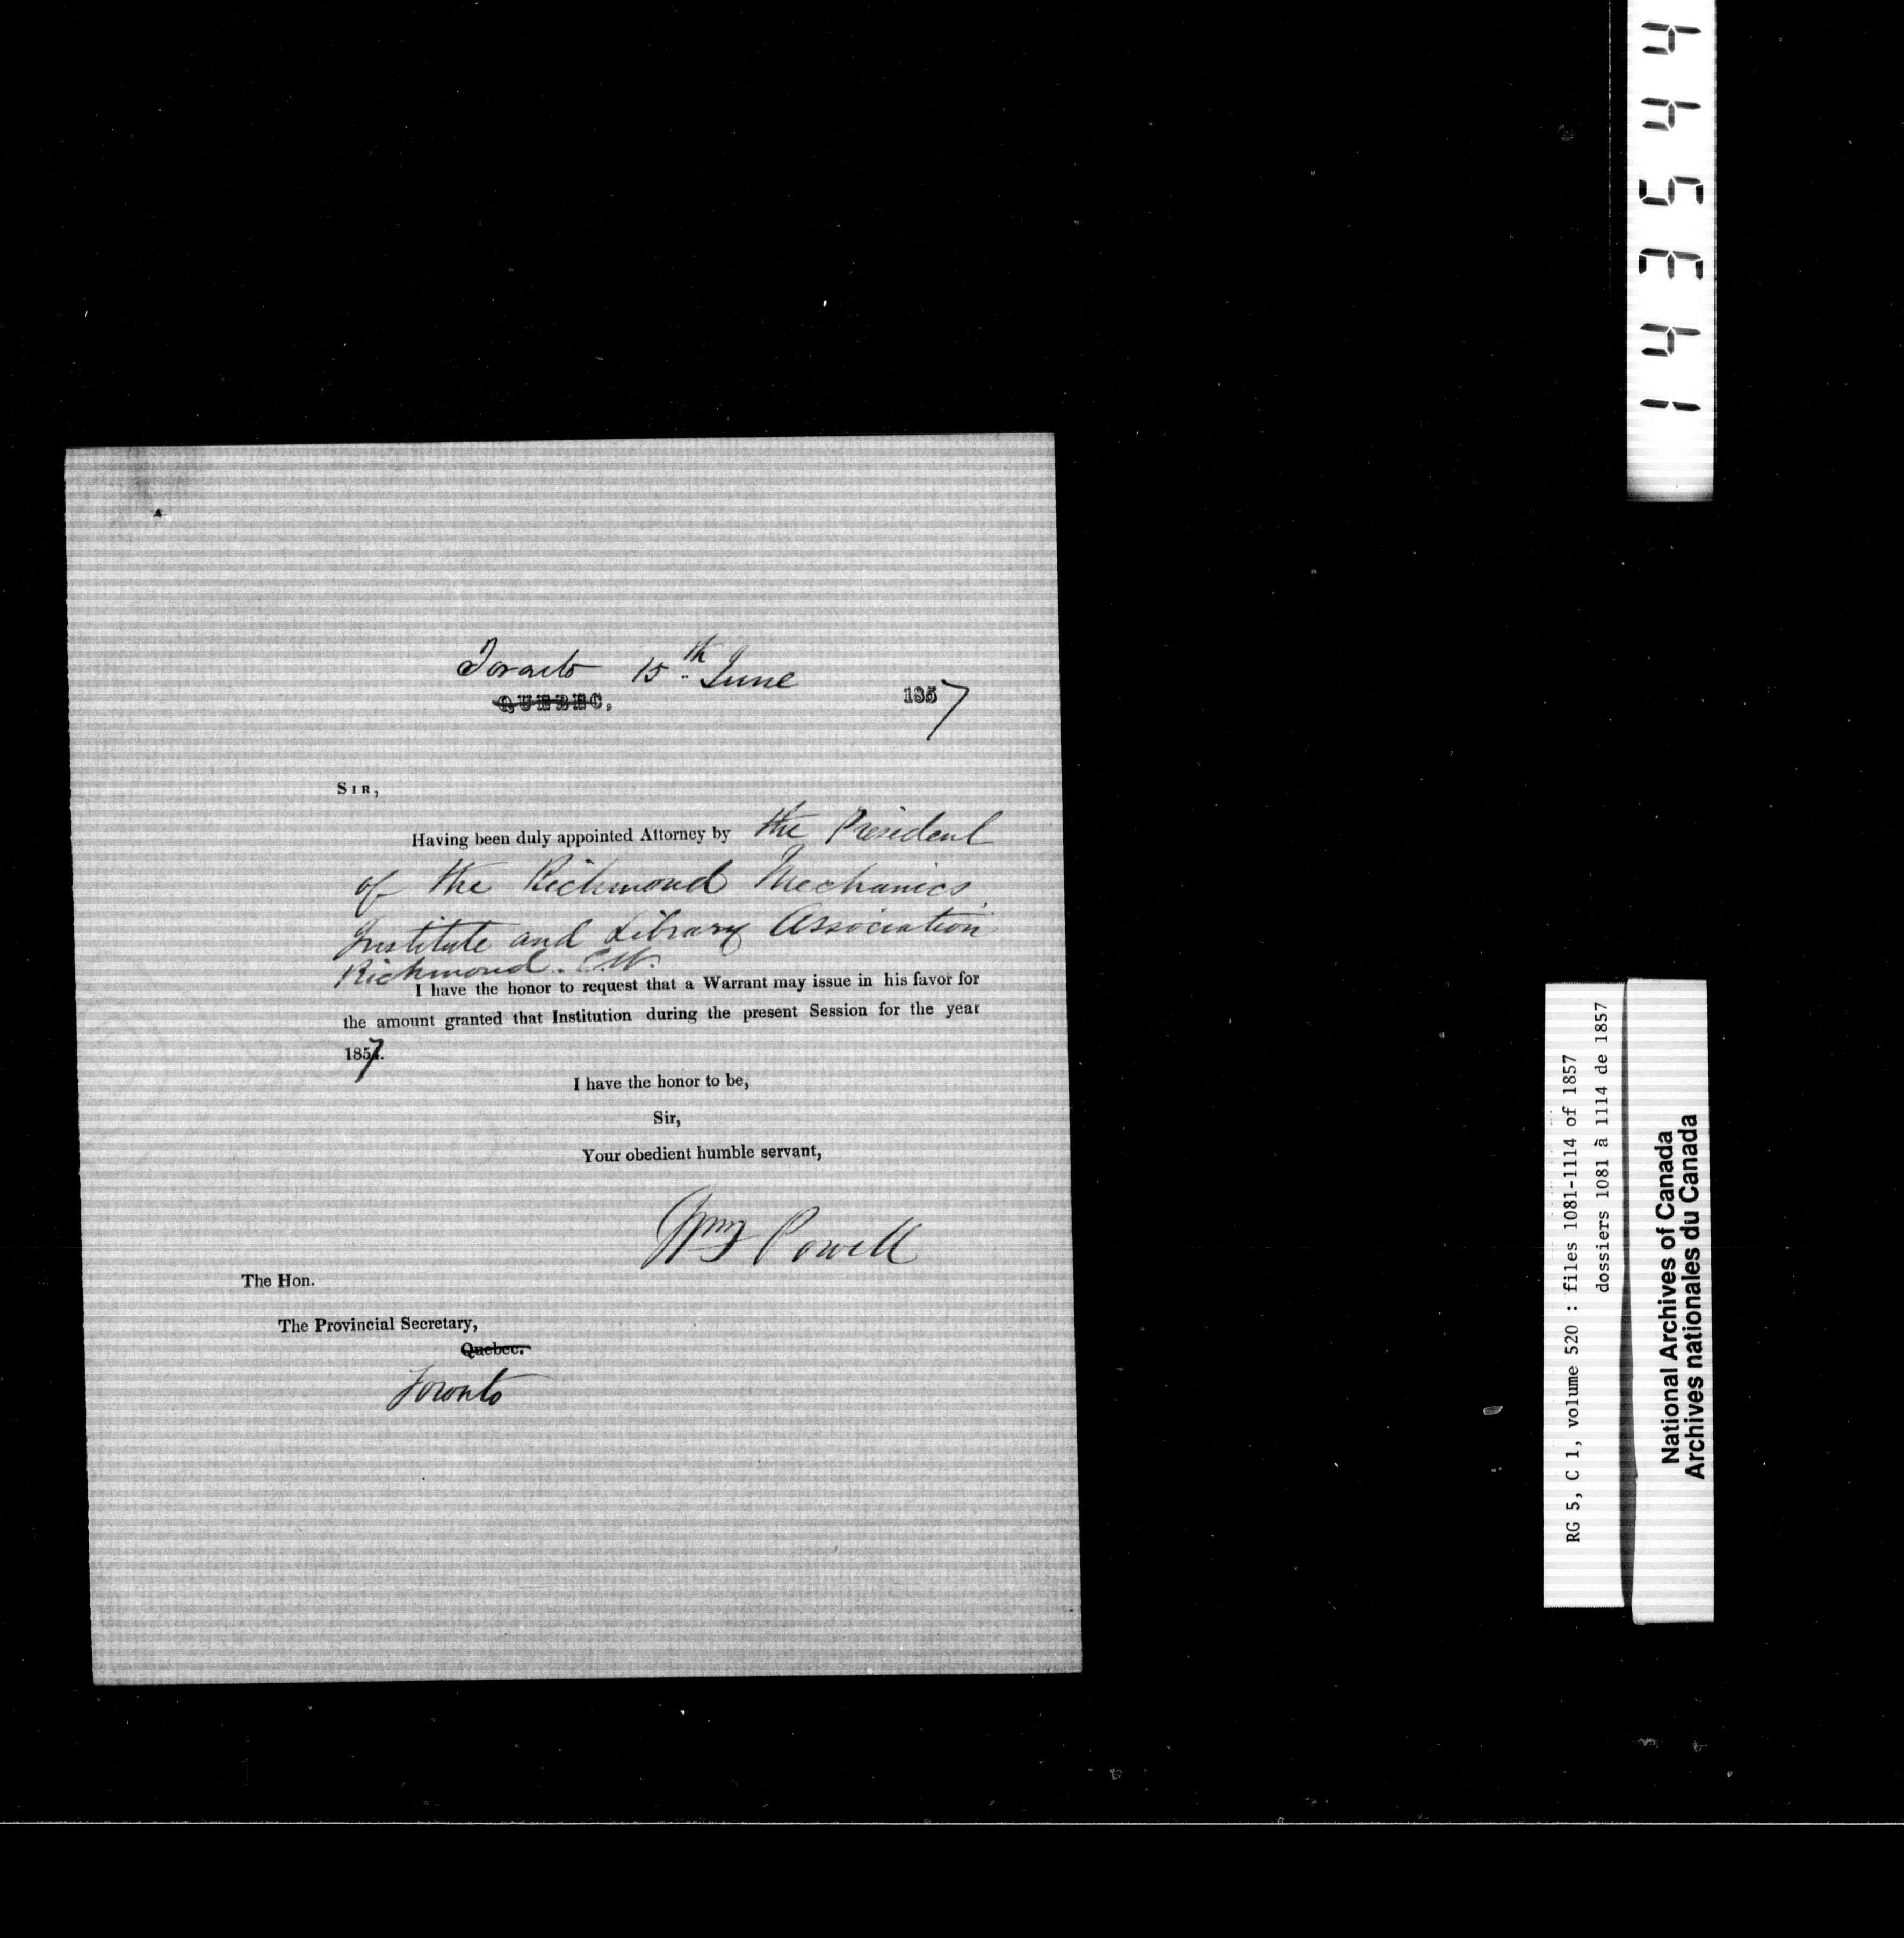 Toronto 15th June 1857
QUEBEC,
SIR,
Having been duly appointed Attorney by the President
of the Richmond Mechanics
Institute and Library Association
Richmond. C.W.
I have the honor to request that a Warrant may issue in his favor for
the amount granted that Institution during the present Session for the year
1857.
I have the honor to be,
Sir,
Your obedient humble servant,
Wm F Powell
The Hon.
The Provincial Secretary,
Quebec.
Toronto
143544
RG 5, C 1, volume 520 : files 1081-1114 of 1857
dossiers 1081 à 1114 de 1857
National Archives of Canada
Archives nationales du Canada